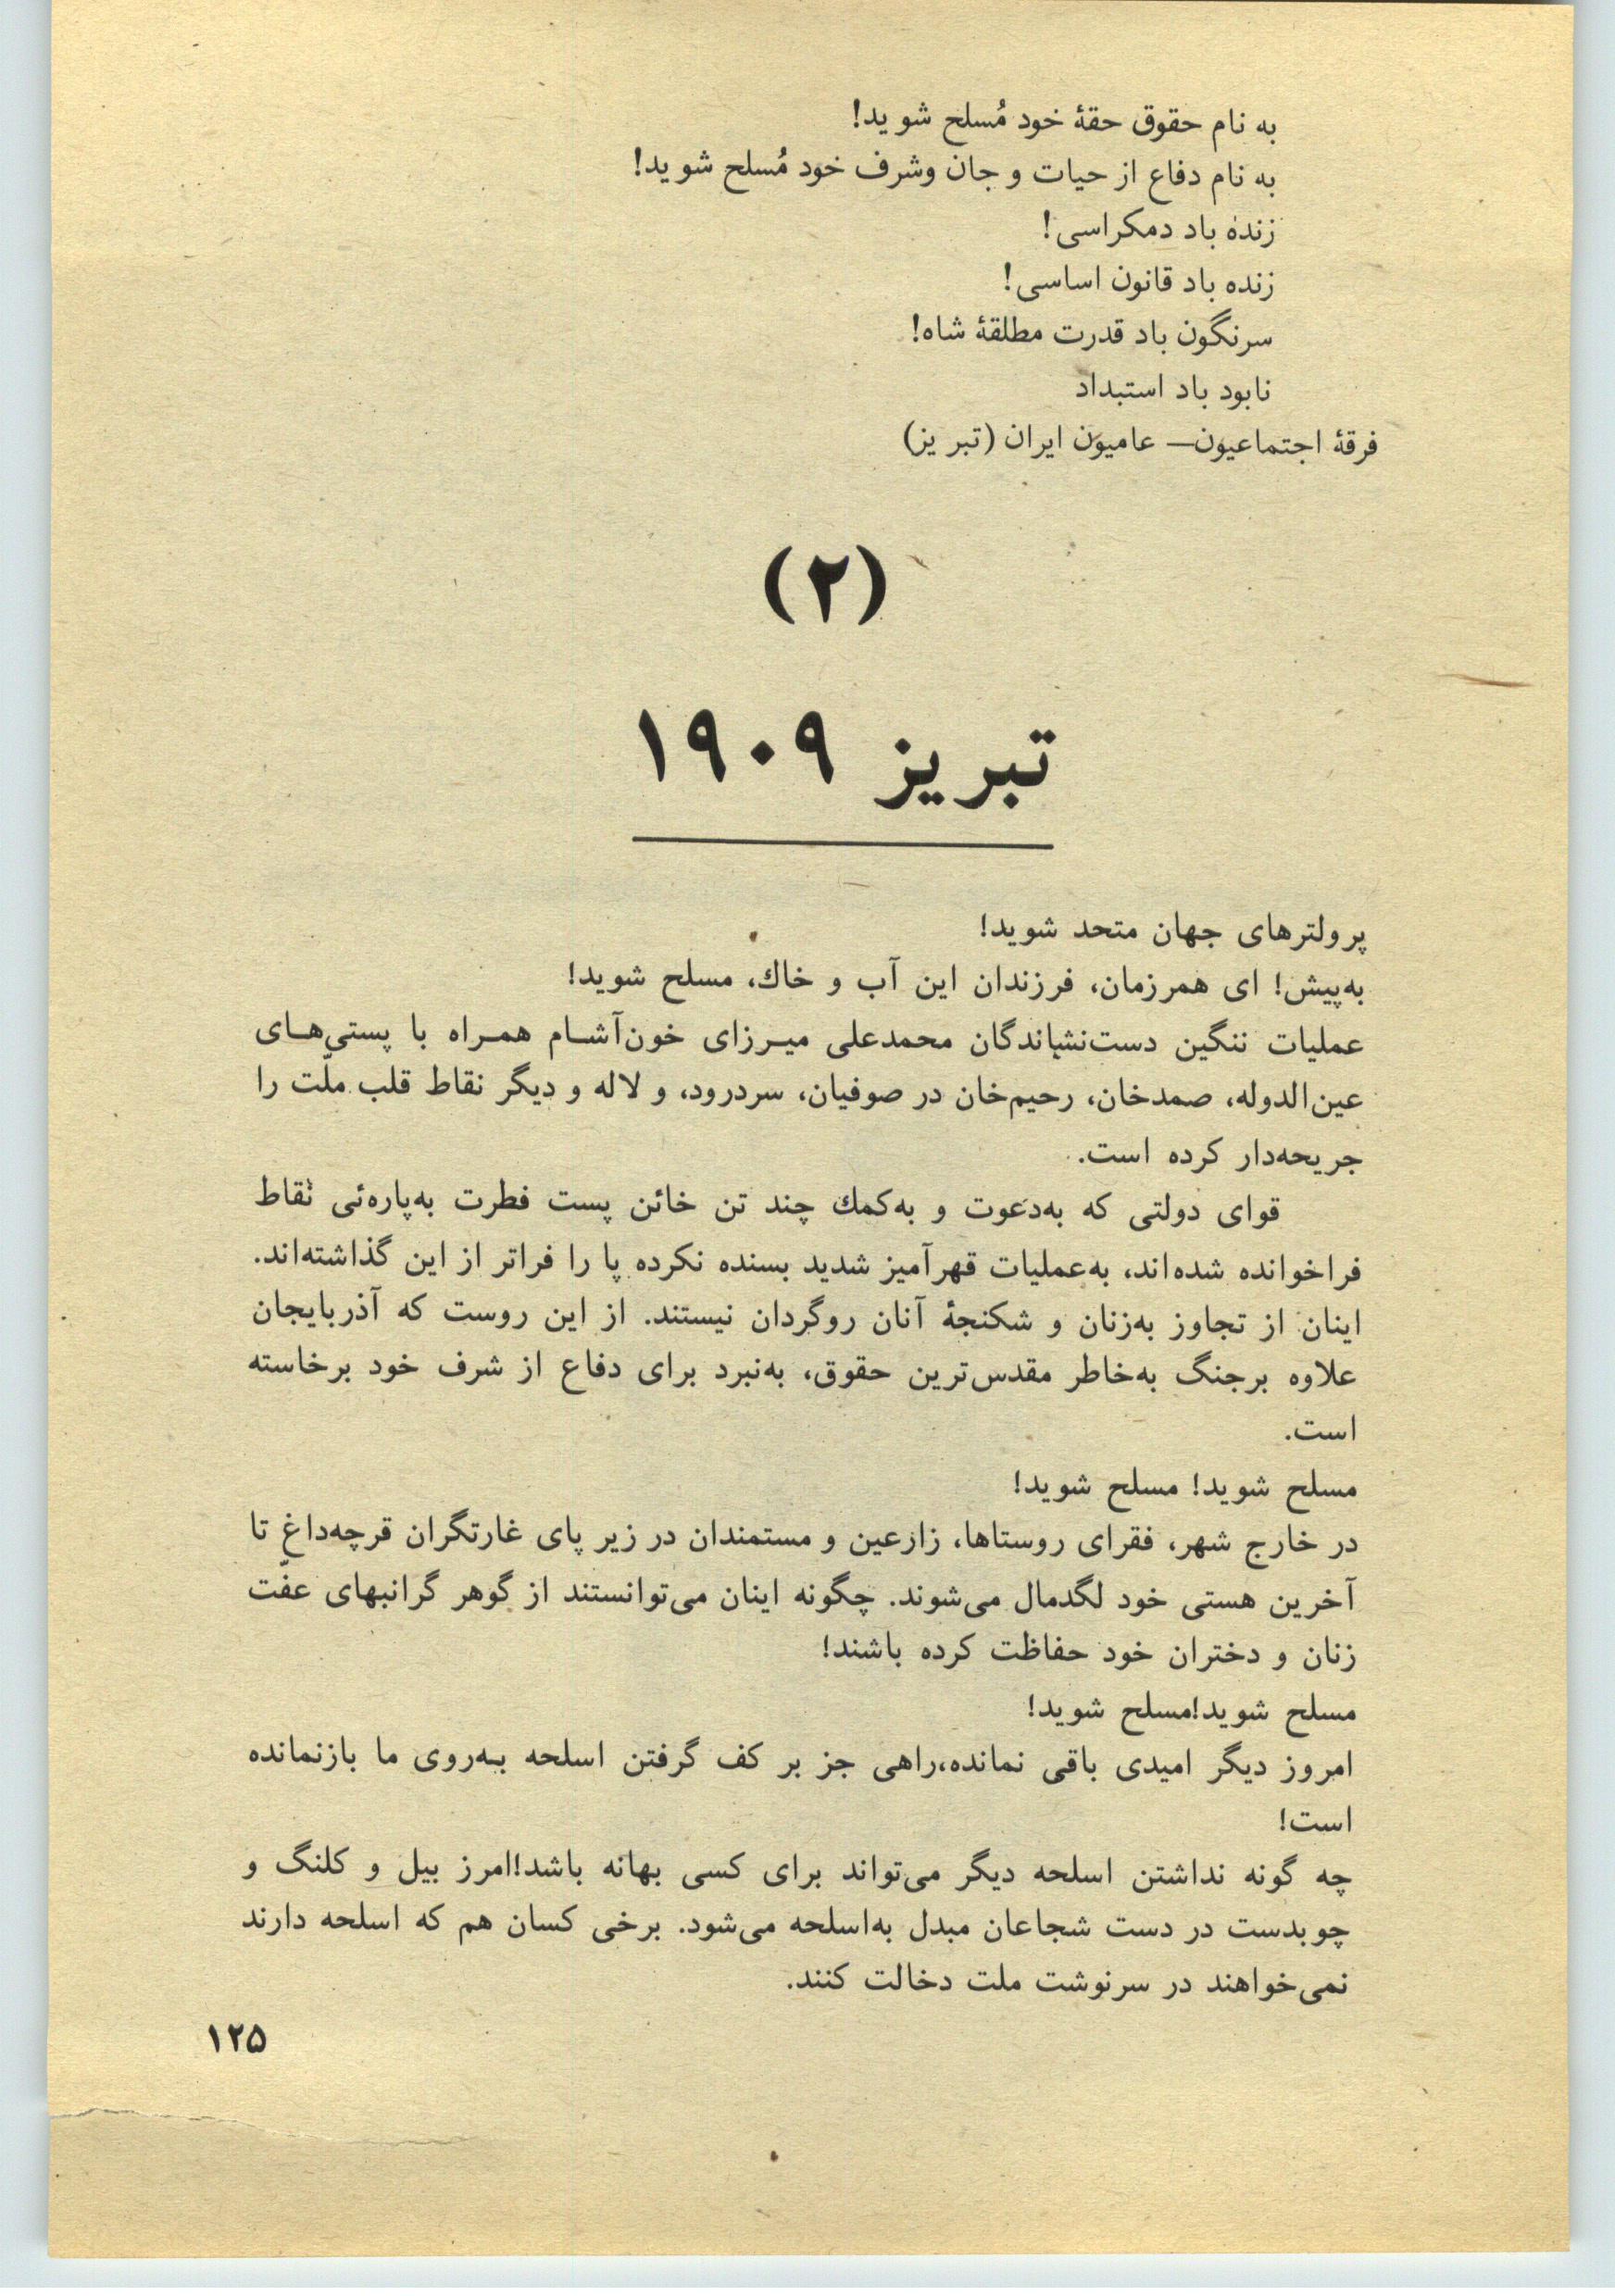 به نام حقوق حقۀ خود مُسلح شوید!
به نام دفاع از حیات و جان وشرف خود مُسلح شوید!
زنده باد دمکراسی!
زنده باد قانون اساسی!
سرنگون باد قدرت مطلقۀ شاه!
نابود باد استبداد
فرقۀ اجتماعیون— عامیون ایران (تبریز)
(۲)
تبریز ۱۹۰۹
پرولترهای جهان متحد شوید!
به‌پیش! ای همرزمان، فرزندان این آب و خاك، مسلح شوید!
عملیات ننگین دست‌نشاندگان محمدعلی میـرزای خون‌آشـام همـراه با پستی‌هـای
عین‌الدوله، صمدخان، رحیم‌خان در صوفیان، سردرود، و لاله و دیگر نقاط قلب ملّت را
جریحه‌دار کرده است.
قوای دولتی که به‌دعوت و به‌کمك چند تن خائن پست فطرت به‌پاره‌ئی نقاط
فراخوانده شده‌اند، به‌عملیات قهرآمیز شدید بسنده نکرده پا را فراتر از این گذاشته‌اند.
اینان از تجاوز به‌زنان و شکنجۀ آنان روگردان نیستند. از این روست که آذربایجان
علاوه برجنگ به‌خاطر مقدس‌ترین حقوق، به‌نبرد برای دفاع از شرف خود برخاسته
است.
مسلح شوید! مسلح شوید!
در خارج شهر، فقرای روستاها، زارعین و مستمندان در زیر پای غارتگران قرچه‌داغ تا
آخرین هستی خود لگدمال می‌شوند. چگونه اینان می‌توانستند از گوهر گرانبهای عفّت
زنان و دختران خود حفاظت کرده باشند!
مسلح شوید!مسلح شوید!
امروز دیگر امیدی باقی نمانده،راهی جز بر کف گرفتن اسلحه بـه‌روی ما بازنمانده
است!
چه گونه نداشتن اسلحه دیگر می‌تواند برای کسی بهانه باشد!امرز بیل و کلنگ و
چوبدست در دست شجاعان مبدل به‌اسلحه می‌شود. برخی کسان هم که اسلحه دارند
نمی‌خواهند در سرنوشت ملت دخالت کنند.
۱۲۵